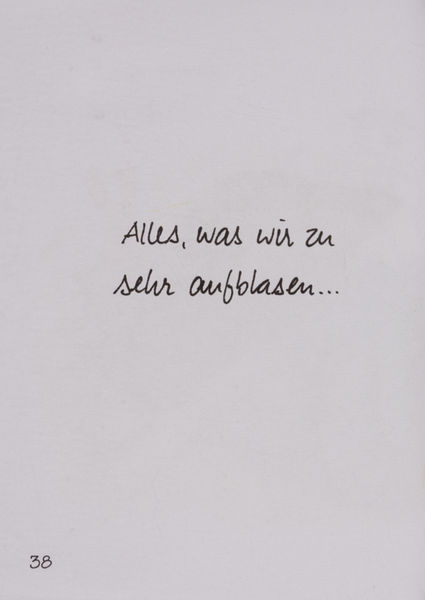 Alles, was wir zu
sehr aufblasen...
38